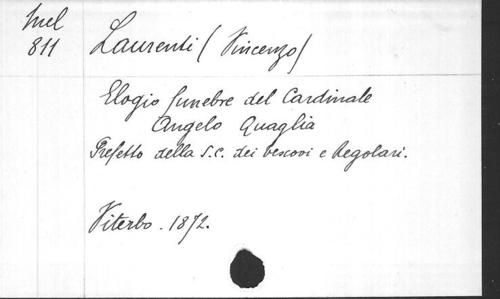 Mel
811
Laurenti (Vincenzo)
Elogio funebre del Cardinale
Angelo Quaglia
Prefetto della S.C. dei Vescovi e Regolari.
Viterbo. 1872.